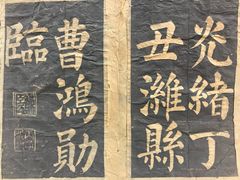 光緒丁
丑濰縣
曹鴻勛
臨